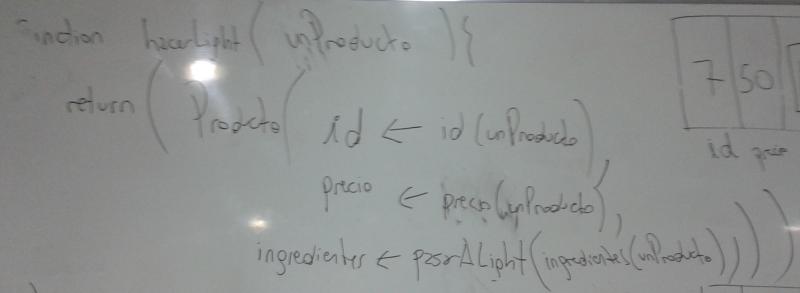 function hacerLight(unProducto){
return(Producto(id ← id(unProducto),
precio ← precio(unProducto),
ingredientes ← pasarALight(ingredientes(unProducto)))))
7 50
id precio